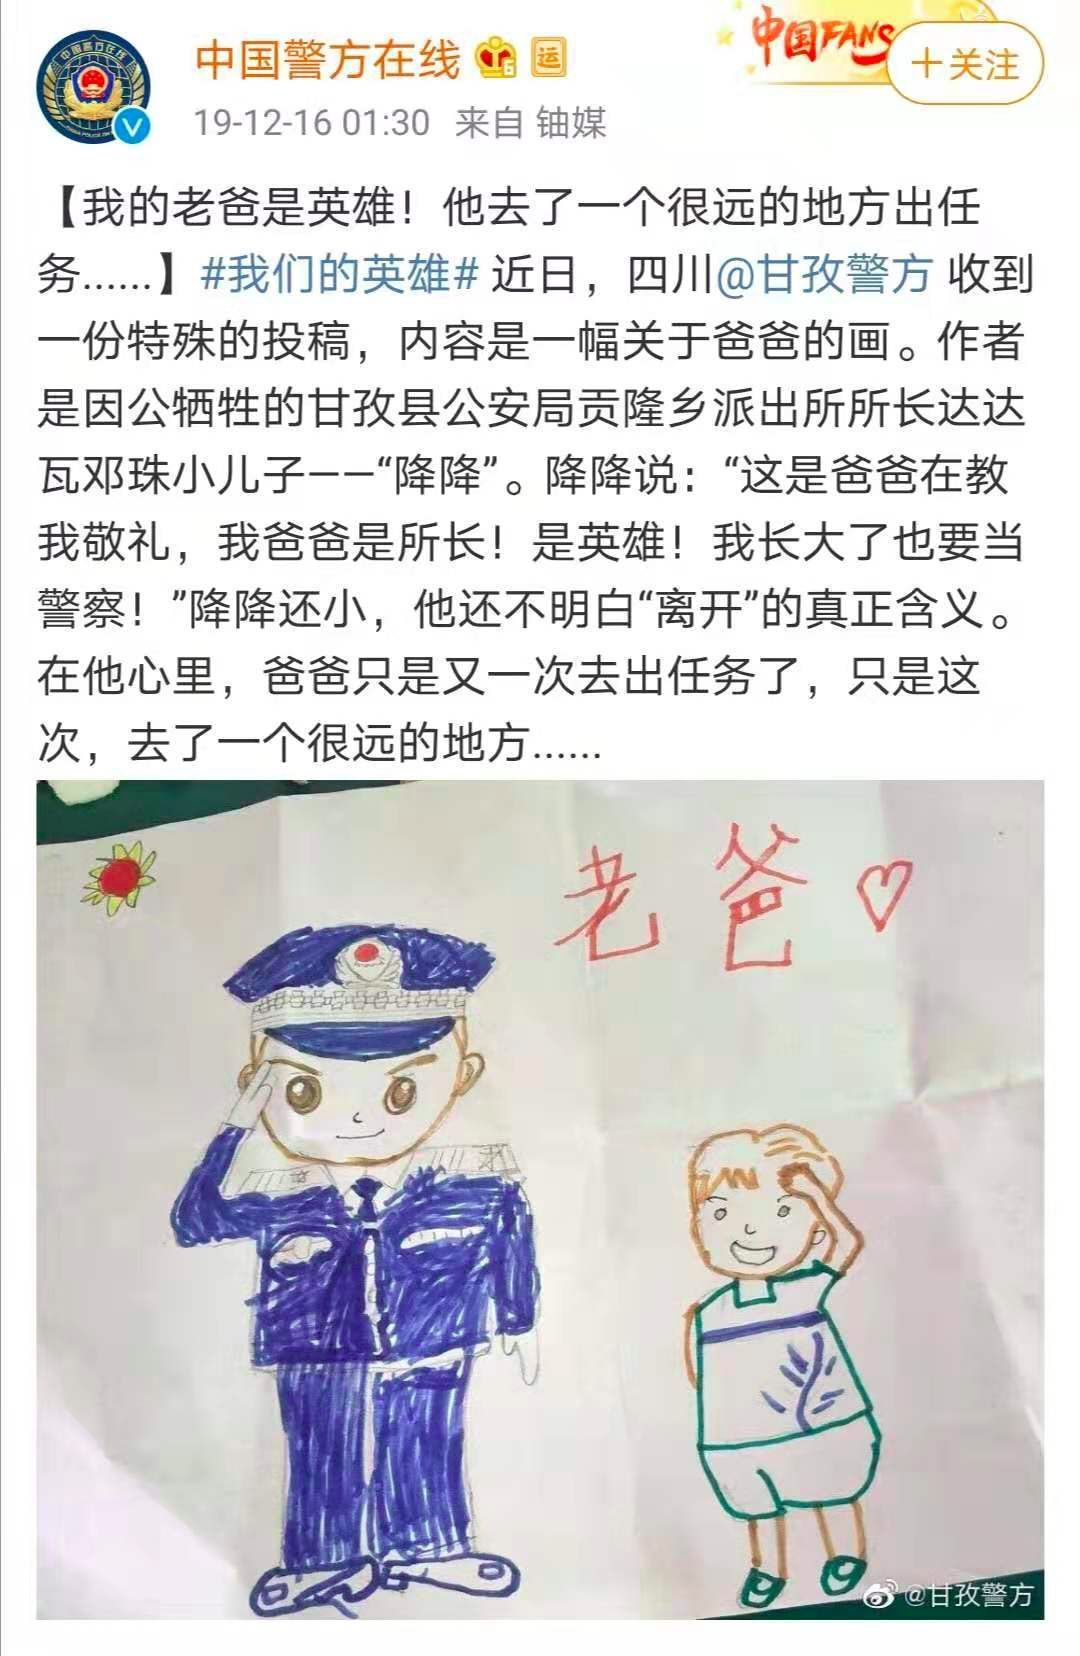 中国FANS
中国警方在线
运
+关注
19-12-16 01:30 来自 铀媒
【我的老爸是英雄！他去了一个很远的地方出任
务……】#我们的英雄# 近日，四川@甘孜警方 收到
一份特殊的投稿，内容是一幅关于爸爸的画。作者
是因公牺牲的甘孜县公安局贡隆乡派出所所长达达
瓦邓珠小儿子——“降降”。降降说：“这是爸爸在教
我敬礼，我爸爸是所长！是英雄！我长大了也要当
警察！”降降还小，他还不明白“离开”的真正含义。
在他心里，爸爸只是又一次去出任务了，只是这
次，去了一个很远的地方……
老爸
@甘孜警方